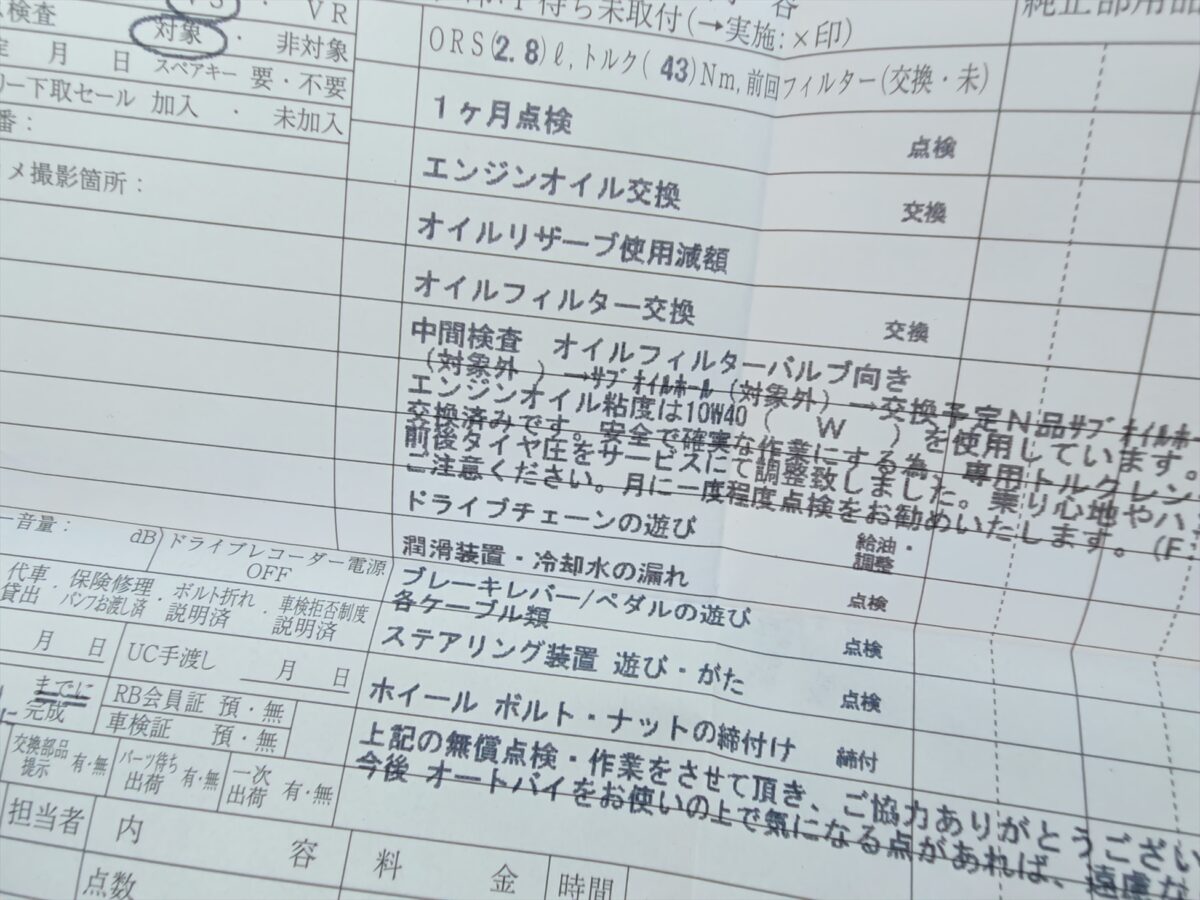 検査
VS・VR
対象・非対象
月 日 スペアキー 要・不要
下取セール 加入・未加入
番:
メ撮影箇所:
待ち未取付(→実施:×印)
純正部用品
ORS(2.8)ℓ,トルク(43)Nm,前回フィルター(交換・未)
1ヶ月点検 点検
エンジンオイル交換 交換
オイルリザーブ使用減額
オイルフィルター交換 交換
中間検査 オイルフィルターバルブ向き
(対象外 )→ｻﾌﾞｵｲﾙﾎｰﾙ(対象外)→交換予定N品ｻﾌﾞｵｲﾙﾎｰ
エンジンオイル粘度は10W40( W )を使用しています。
交換済みです。安全で確実な作業にする為、専用トルクレン
前後タイヤ圧をサービスにて調整致しました。乗り心地やハ
ご注意ください。月に一度程度点検をお勧めいたします。(F:
ドライブチェーンの遊び 給油・調整
潤滑装置・冷却水の漏れ 点検
ブレーキレバー/ペダルの遊び
各ケーブル類 点検
ステアリング装置 遊び・がた 点検
ホイール ボルト・ナットの締付け 締付
上記の無償点検・作業をさせて頂き、ご協力ありがとうござい
今後 オートバイをお使いの上で気になる点があれば、遠慮な
音量: dB
ドライブレコーダー電源
OFF
代車貸出・保険修理パンフお渡し済・ボルト折れ説明済・車検拒否制度説明済
月 日
UC手渡し 月 日
までに
完成
RB会員証 預・無
車検証 預・無
交換部品提示 有・無
パーツ待ち出荷 有・無
一次出荷 有・無
担当者
内 容
料 金
時間
点数